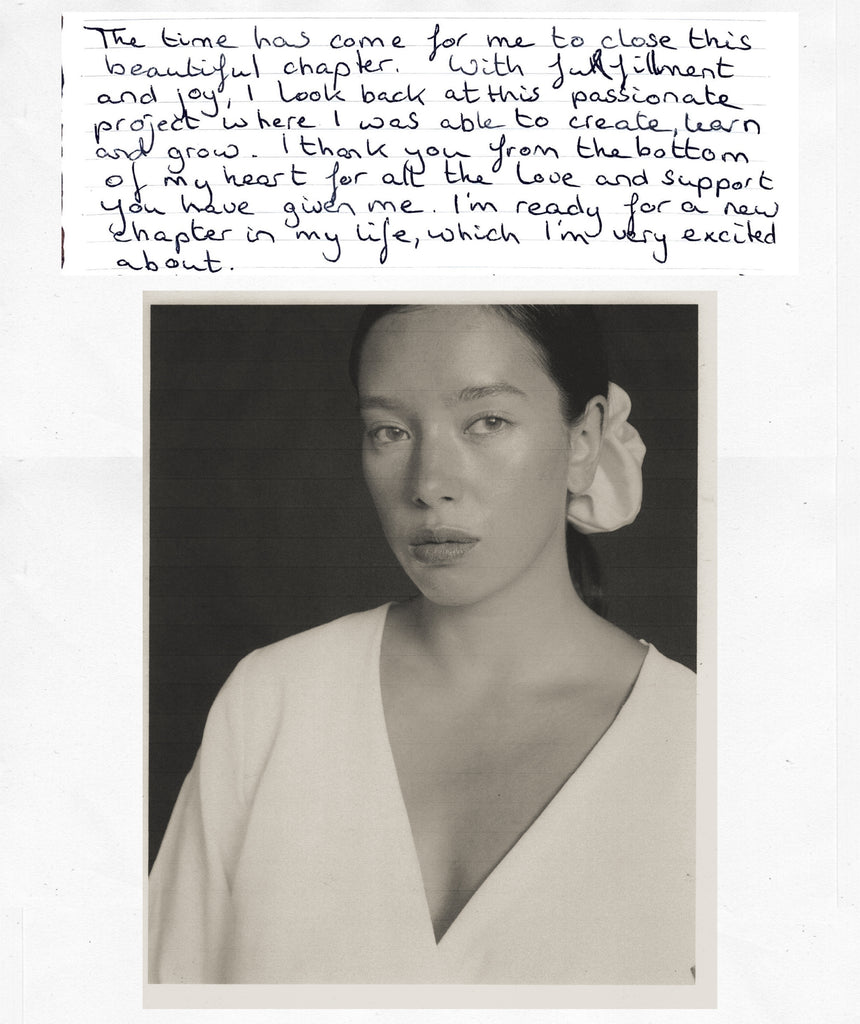 The time has come for me to close this
beautiful chapter. With fulfillment
and joy, I look back at this passionate
project where I was able to create, learn
and grow. I thank you from the bottom
of my heart for all the love and support
you have given me. I'm ready for a new
chapter in my life, which I'm very excited
about.